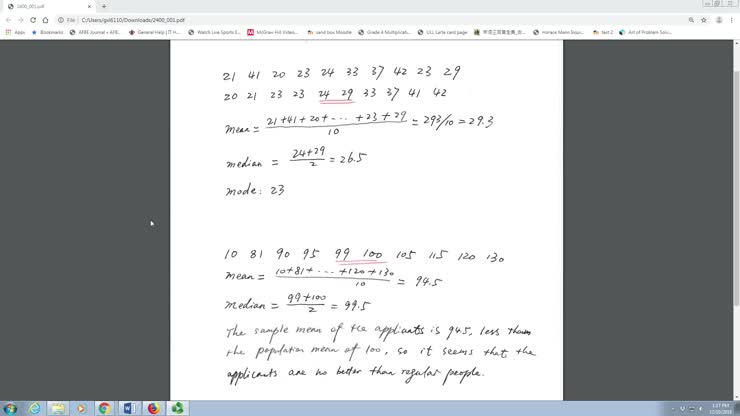 2400_001.pdf
File | C:/Users/gxl6110/Downloads/2400_001.pdf
Apps Bookmarks AFEE Journal « AFEE... General Help | IT H... Watch Live Sports E... McGraw Hill Video... sand box Moodle Grade 4 Multiplicati... ULL Larte card page test 2 Horace Mann Inqui... Art of Problem Solv...
21 41 20 23 24 33 37 42 23 29
20 21 23 23 24 29 33 37 41 42
mean = 21+41+20+ ... +23+29 / 10 = 293/10 = 29.3
median = 24+29 / 2 = 26.5
mode: 23
10 81 90 95 99 100 105 115 120 130
mean = 10+81+ ... +120+130 / 10 = 94.5
median = 99+100 / 2 = 99.5
The sample mean of the applicants is 94.5, less than
the population mean of 100, so it seems that the
applicants are no better than regular people.
3:37 PM